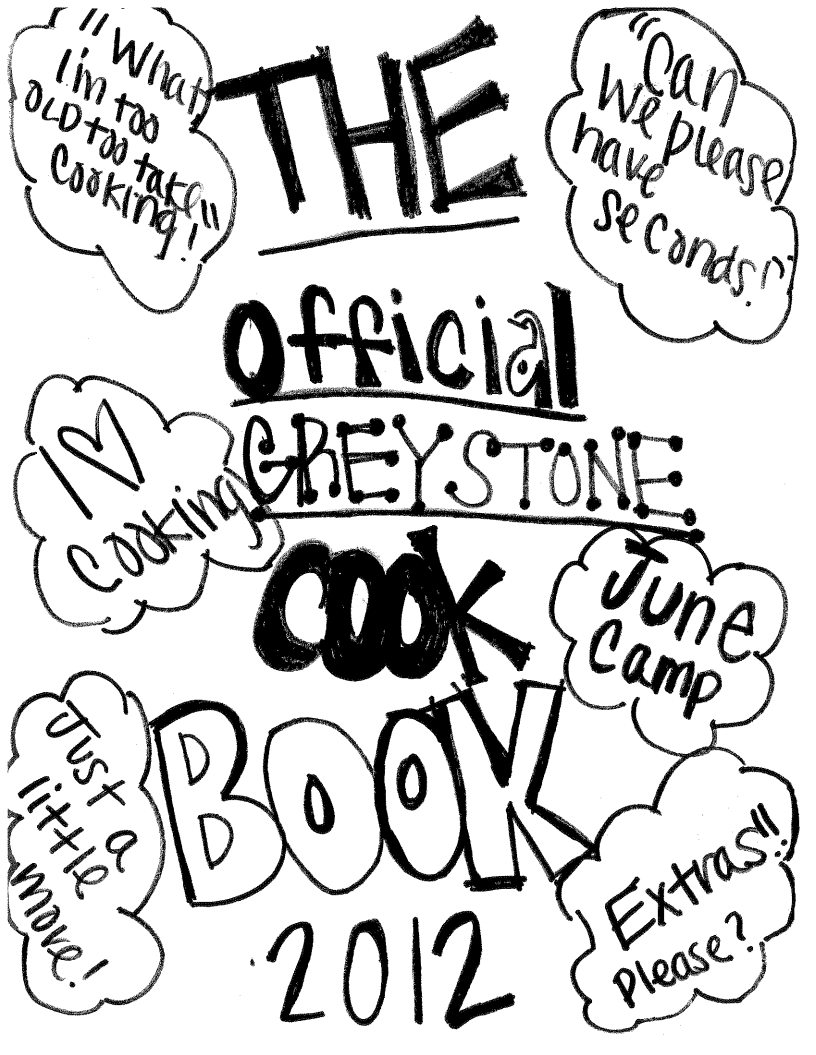 "What
I'm too
OLD too take
Cooking!"
THE
"Can
we please
have
seconds!"
Official
GREYSTONE
I ♡
Cooking
COOK
June
Camp
BOOK
Just a
little
more!
Extras!!
Please?
2012